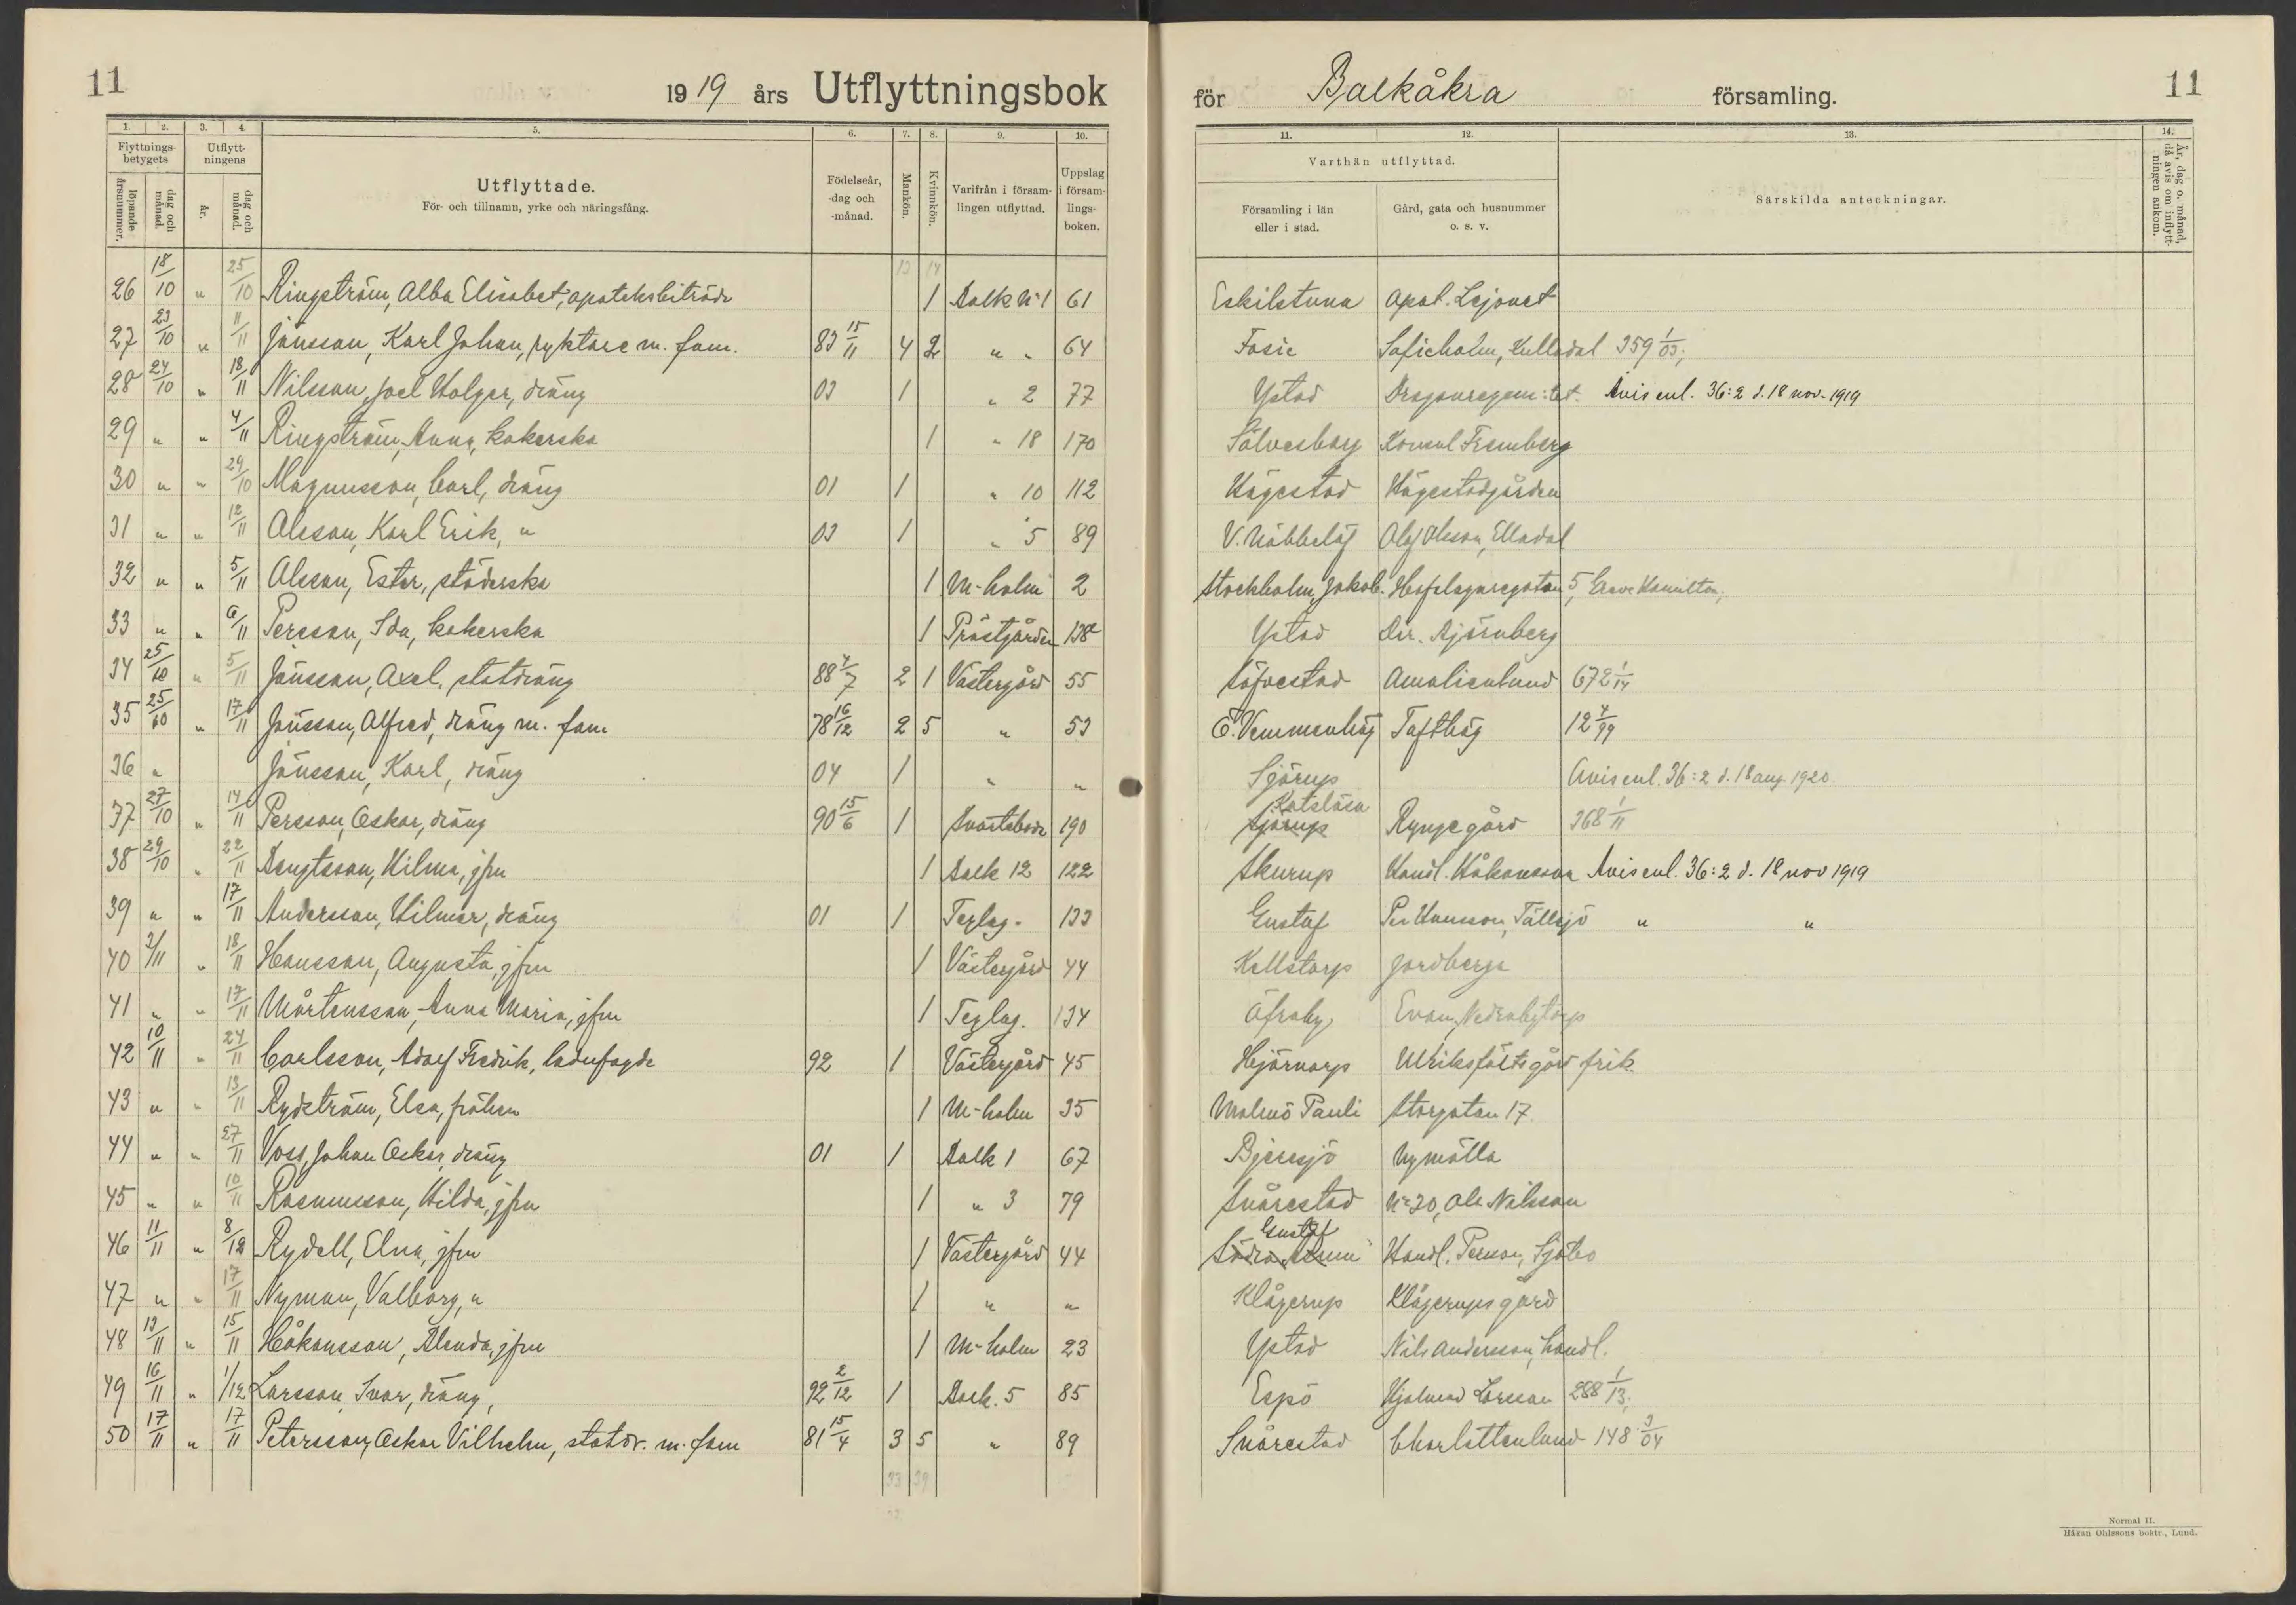 11
1919 års Utflyttningsbok
1. 2. 3. 4. 5. 6. 7. 8. 9. 10.
Flyttnings-betygets
Utflytt-ningens
löpande årsnummer.
dag och månad.
år.
dag och månad.
Utflyttade.
För- och tillnamn, yrke och näringsfång.
Födelseår, -dag och -månad.
Mankön.
Kvinnkön.
Varifrån i församlingen utflyttad.
Uppslag i församlings-boken.
för Balkåkra församling.
11
11. 12. 13. 14.
Varthän utflyttad.
Församling i län eller i stad.
Gård, gata och husnummer o. s. v.
Särskilda anteckningar.
År, dag o. månad, då avis om inflyttningen ankom.
26 18/10 " 25/10 Ringström, Alba Elisabet, apoteksbiträde 1 Balk N:1 61 Eskilstuna Apot. Lejonet
27 23/10 " 11/11 Jönsson, Karl Johan, ryktare m. fam. 83 15/11 4 2 " " 64 Fosie Sofieholm, Kulladal 359 1/03;
28 24/10 " 18/11 Nilsson, Joel Holger, dräng 03 1 " 2 77 Ystad Dragonregem:tet. Avis enl. 36:2 d. 18 nov. 1919
29 " " 4/11 Ringström, Anna, kokerska 1 " 18 170 Sölvesborg Konsul Fremberg
30 " " 29/10 Magnusson, Carl, dräng 01 1 " 10 112 Högestad Högestadgården
31 " " 12/11 Olsson, Karl Erik, " 03 1 " 5 89 V. Nöbbelöf Olof Olsson, Elladal
32 " " 5/11 Olsson, Ester, städerska 1 M-holm 2 Stockholm, Jakob. Hofslagaregatan 5, Greve Hamilton;
33 " " 6/11 Persson, Ida, kokerska 1 Prästgården 138 Ystad Dir. Björnberg
34 25/10 " 5/11 Jönsson, Axel, statdräng 88 4/7 2 1 Västergård 55 Söfvestad Amalienlund 672 1/14
35 25/10 " 17/11 Jönsson, Alfred, dräng m. fam. 78 16/12 2 5 " 53 Ö. Vemmenhög Tofthög 12 4/99
36 " Jönsson, Karl, dräng 04 1 " " Sjörup Avis enl. 36:2 d. 18 aug. 1920
37 27/10 " 14/11 Persson, Oskar, dräng 90 15/6 1 Svartebode 190 Sjörup Katslösa Rynge gård 368 1/11
38 29/10 " 22/11 Bengtsson, Hilma, jfru 1 Balk 12 122 Skurup Handl. Håkansson Avis enl. 36:2 d. 18 nov 1919
39 " " 17/11 Andersson, Hilmer, dräng 01 1 Teglag. 133 Gustaf Per Hansson, Tällsjö " "
40 3/11 " 18/11 Hansson, Augusta, jfru 1 Västergård 44 Källstorp Jordberga
41 " " 17/11 Mårtensson, Anna Maria, jfru 1 Teglag. 134 Öfraby Evan, Nedrabytorp
42 10/11 " 24/11 Carlsson, Adolf Fredrik, ladufogde 92 1 Västergård 45 Hjärnarp Ulriksfälts gård frik.
43 " " 13/11 Rydström, Elsa, fröken 1 M-holm 35 Malmö Pauli Storgatan 17.
44 " " 27/11 Voss, Johan Oskar, dräng 01 1 Balk 1 67 Bjeresjö Nymölla
45 " " 10/11 Rasmusson, Hilda, jfru 1 " 3 79 Snårestad N:20, Ole Nilsson
46 11/11 " 8/12 Rydell, Elna, jfru 1 Västergård 44 Södra Åsum Gustaf Handl. Persson, Sjöbo
47 " " 17/11 Nyman, Valborg, " 1 " " Klågerup Klågerups gård
48 13/11 " 15/11 Håkansson, Blenda, jfru 1 M-holm 23 Ystad Nils Andersson, handl.
49 16/11 " 1/12 Larsson, Ivar, dräng, 92 2/12 1 Balk. 5 85 Espö Hjalmar Larsson 288 1/13;
50 17/11 " 17/11 Petersson, Oskar Vilhelm, statdr. m. fam 81 15/4 3 5 " 89 Snårestad Charlottenlund 148 3/04
33 39
Normal II.
Håkan Ohlssons boktr., Lund.